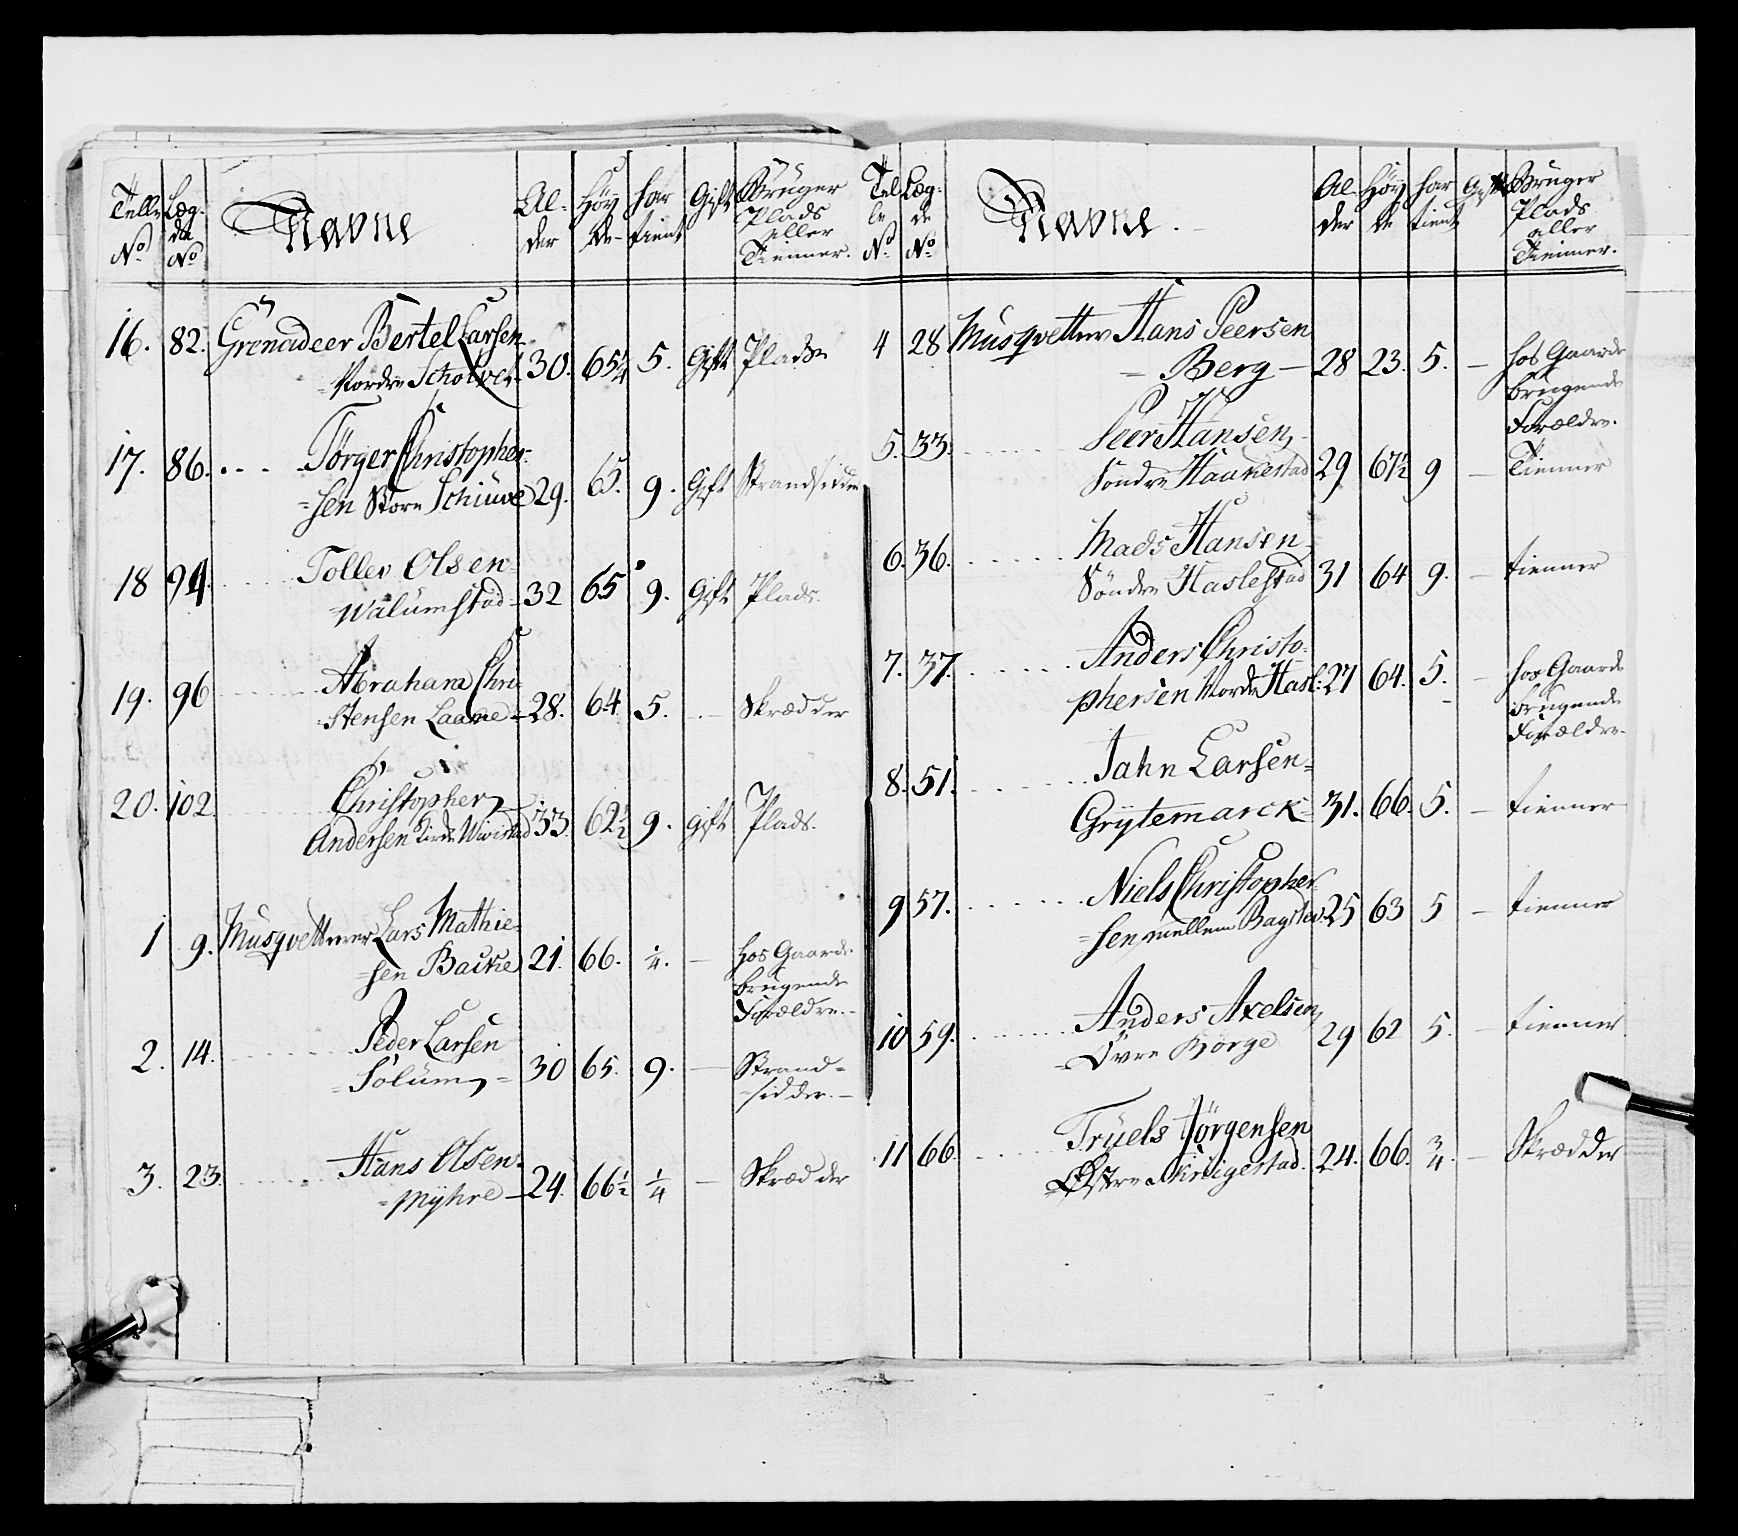 Telle Læg- Navne Al- Høy har Gift Bruger
No de der de tient Plads
No eller
Tienner.
16. 82. Grenadeer Bertel Larsen
Nordre Scholve 30. 65 1/4 5. Gift Plads
17. 86. Törger Christopher-
sen Store Schiuve 29. 65. 9. Gift Strandsidder
18 94. Tollev Olsen
Walumstad 32 65 9. Gift Plads.
19. 96 Abraham Chri-
stensen Laane 28. 64. 5. - Skrædder
20. 102 Christopher
Andersen 33. 62 1/2 9. gift Plads.
1 9. Musqvetterer Lars Mathie-
sen Backe 21. 66. 1/4. - hos Gaard-
brugende
Forældre.-
2. 14. Peder Larsen
Solum 30 65. 9. - Strand-
sidder.-
3. 23. Hans Olsen
Myhre 24. 66 1/2 1/4 - Skrædder
Tel- Læg- Navne. Al- Høy har Gift Bruger
le de der de tient Plads
No No eller
Tienner.
4 28 Musqvetterer Hans Peersen
Berg 28 23. 5. - hos Gaard
brugende
Forældre.
5. 33. Peer Hansen
Söndre Haanestad 29 67 1/2 9 - Tienner
6. 36. Mads Hansen
Söndre Haslestad 31 64 9. - tienner
7. 37. Anders Christo-
phersen Nordre Hasl: 27 64. 5. - hos Gaard
brugende
Forældre.
8. 51. Jahn Larsen
Grytemarck 31. 66. 5. - tienner
9 57. Niels Christopher-
sen mellem Bagstev: 25 63 5 - tienner
10 59. Anders Axelsen
Övre Horge 29 62 5. - tienner
11 66. Truels Jörgensen
Östre 24. 66. 3/4. - Skrædder